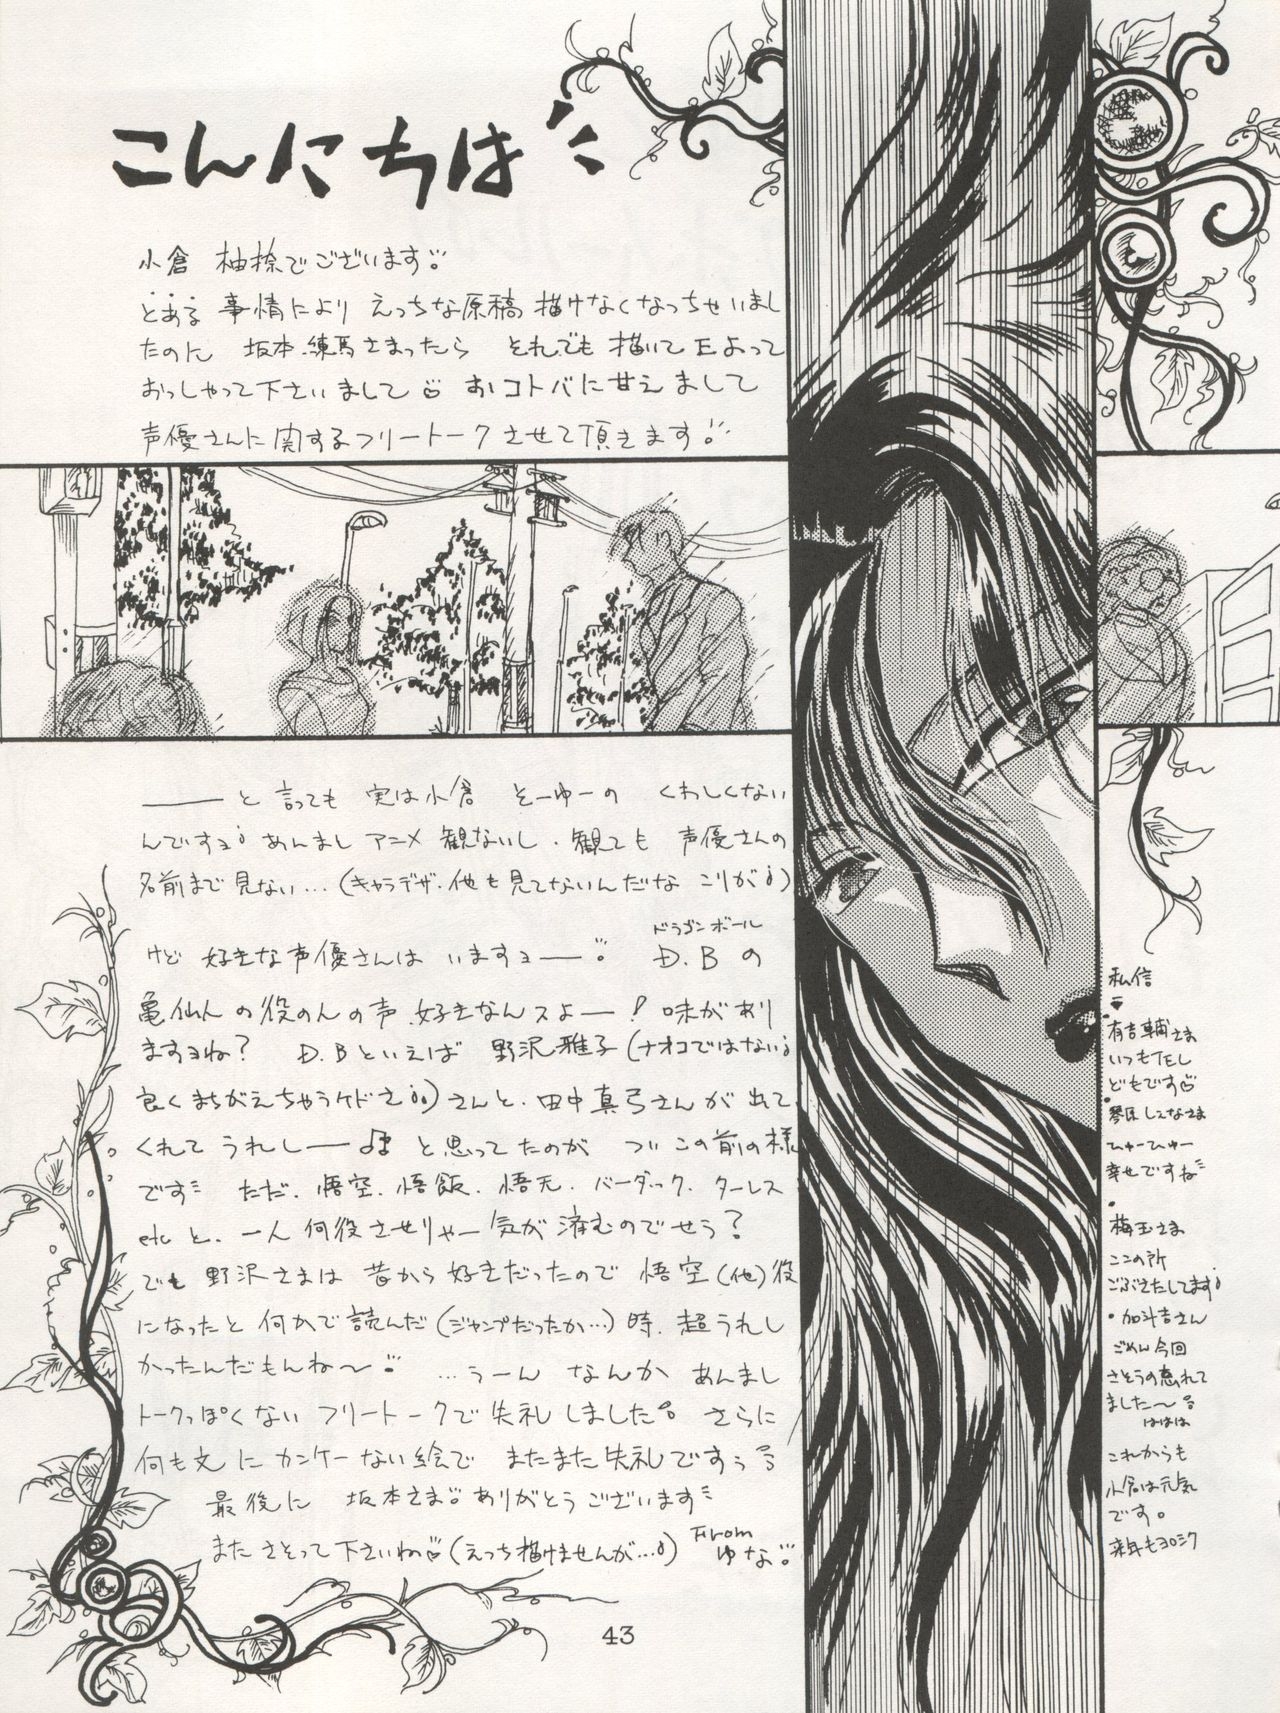 こんにちは
小倉 柚捺でございます
とある事情により えっちな原稿描けなくなっちゃいまし
たのに 坂本練馬さまったら それでも描いてEよって
おっしゃって下さいまして おコトバに甘えまして
声優さんに関するフリートークさせて頂きます
——と言っても 実は小倉 そーゆーの くわしくない
んですョ あんまし アニメ観ないし、観ても 声優さんの
名前まで見ない…(キャラデザ・他も見てないんだな こりが)
けど 好きな声優さんは いますョ—— D.Bの
ドラゴンボール
亀仙人の役の人の声、好きなんスよー! 味があり
ますョね? D.Bといえば 野沢雅子(ナオコではない
良くまちがえちゃうケドさ)さんと、田中真弓さんが出て
くれて うれしー♪ と思ってたのが ついこの前の様
です ただ、悟空、悟飯、悟天、バーダック、ターレス
etcと、一人何役させりゃー気が済むのでせう?
でも 野沢さまは 昔から好きだったので 悟空(他)役
になったと何かで読んだ(ジャンプだったか…)時、超うれし
かったんだもんね〜 …うーん なんか あんまし
トークっぽくない フリートークで失礼しました さらに
何も文にカンケーない絵で またまた失礼ですぅ
最後に 坂本さま ありがとうございます
また さそって下さいね(えっち描けませんが…)
From
ゆな
43
私信
有吉輔さま
いつもTEL
どもです
琴原しいなさま
ひゅーひゅー
幸せですね
梅玉さま
ここの所
ごぶさたしてます
・加斗吉さん
ごめん今回
さそうの忘れて
ました〜
ははは
これからも
小倉は元気
です。
来年もヨロシク